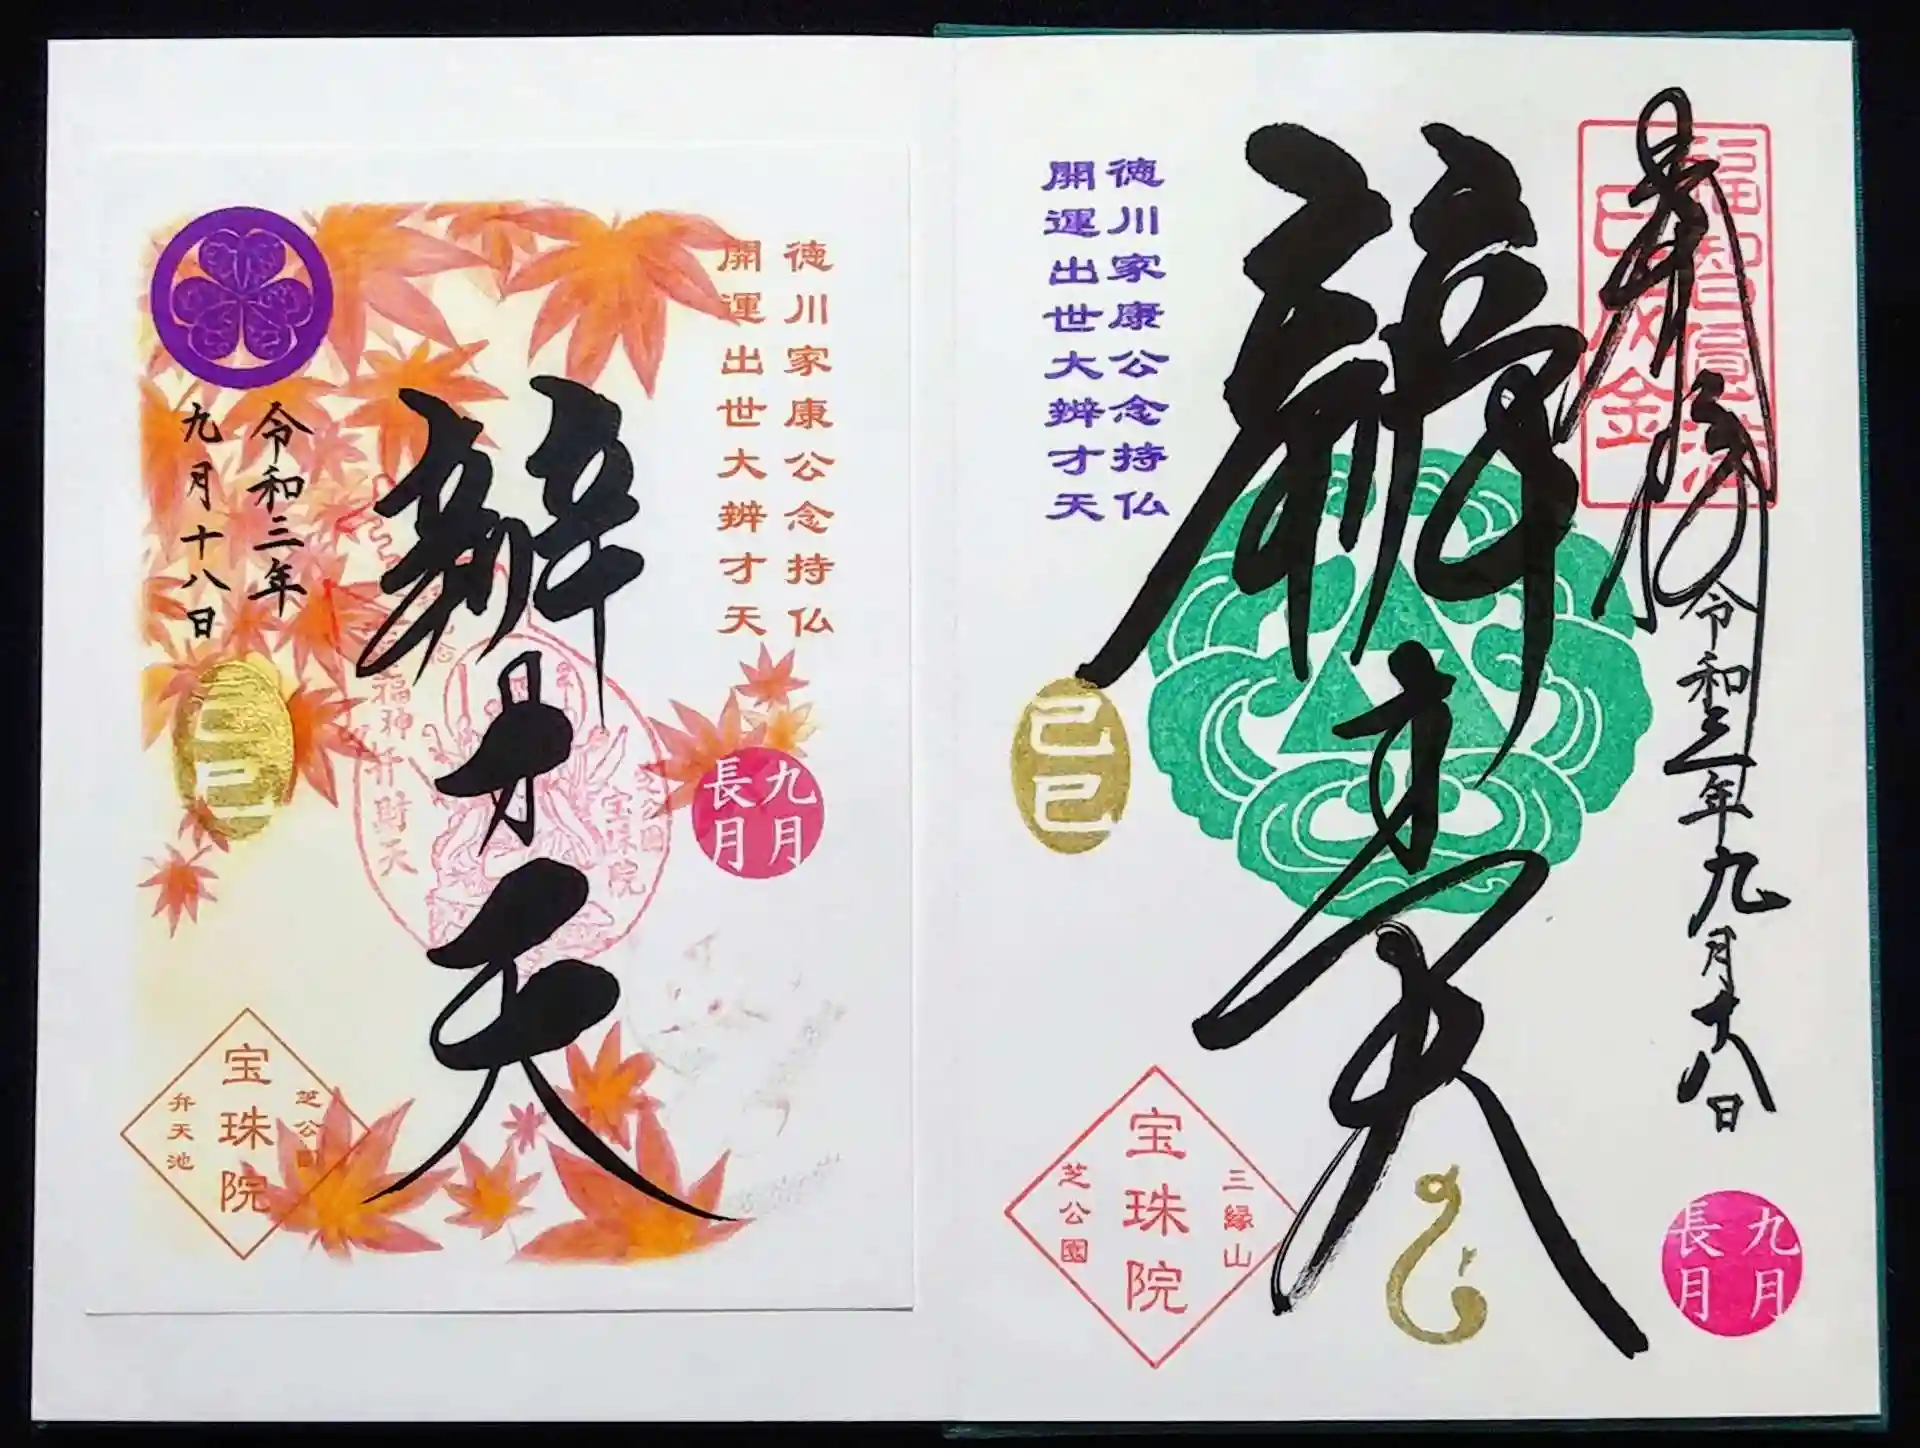 奉拝
令和三年九月十八日
辨才天
徳川家康公念持仏
開運出世大辨才天
己巳
三縁山
宝珠院
芝公園
九月
長月
徳川家康公念持仏
開運出世大辨才天
辨才天
令和三年
九月十八日
己巳
九月
長月
芝公園
宝珠院
福神弁財天
芝公園
宝珠院
弁天池